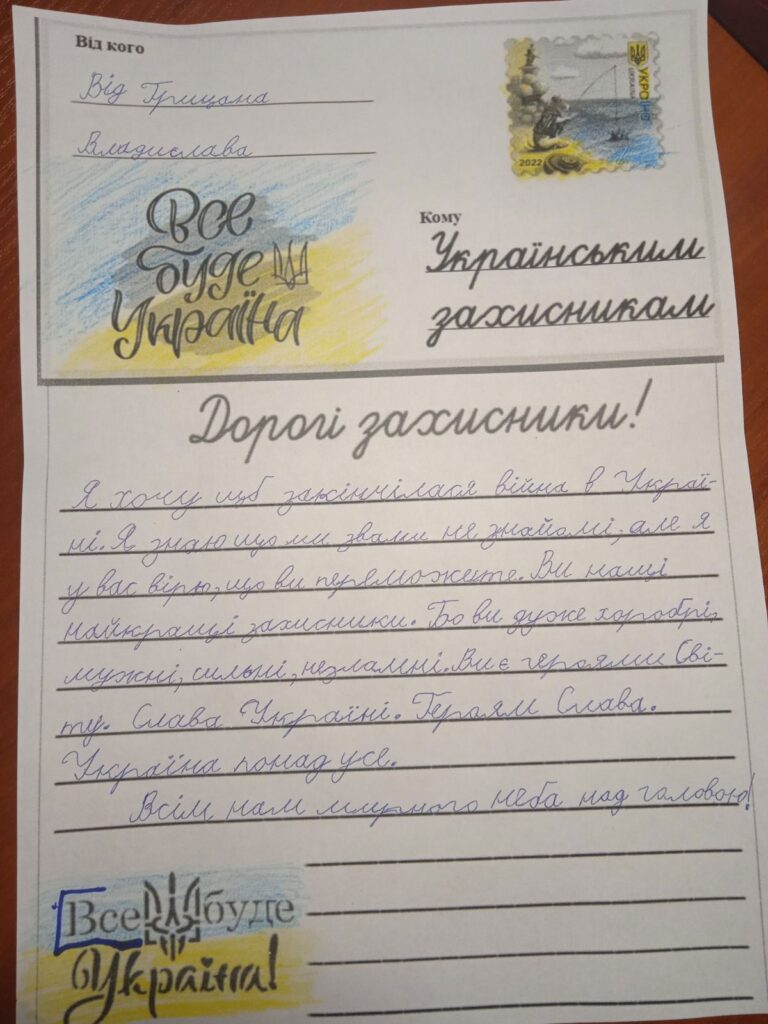 Від кого
Від Грицана
Владислава
УКРАЇНА
UKRAINE
2022
Все
буде
Україна
Кому
Українським
захисникам
Дорогі захисники!
Я хочу щоб закінчілася війна в Украї-
ні. Я знаю що ми звами не знайомі, але я
у вас вірю, що ви переможете. Ви наші
найкращі захисники. Бо ви дуже хоробрі,
мужні, сильні, незламні. Ви є героями Сві-
ту. Слава Україні. Героям Слава.
Україна понад усе.
Всім нам мирного неба над головою!
Все буде
Україна!